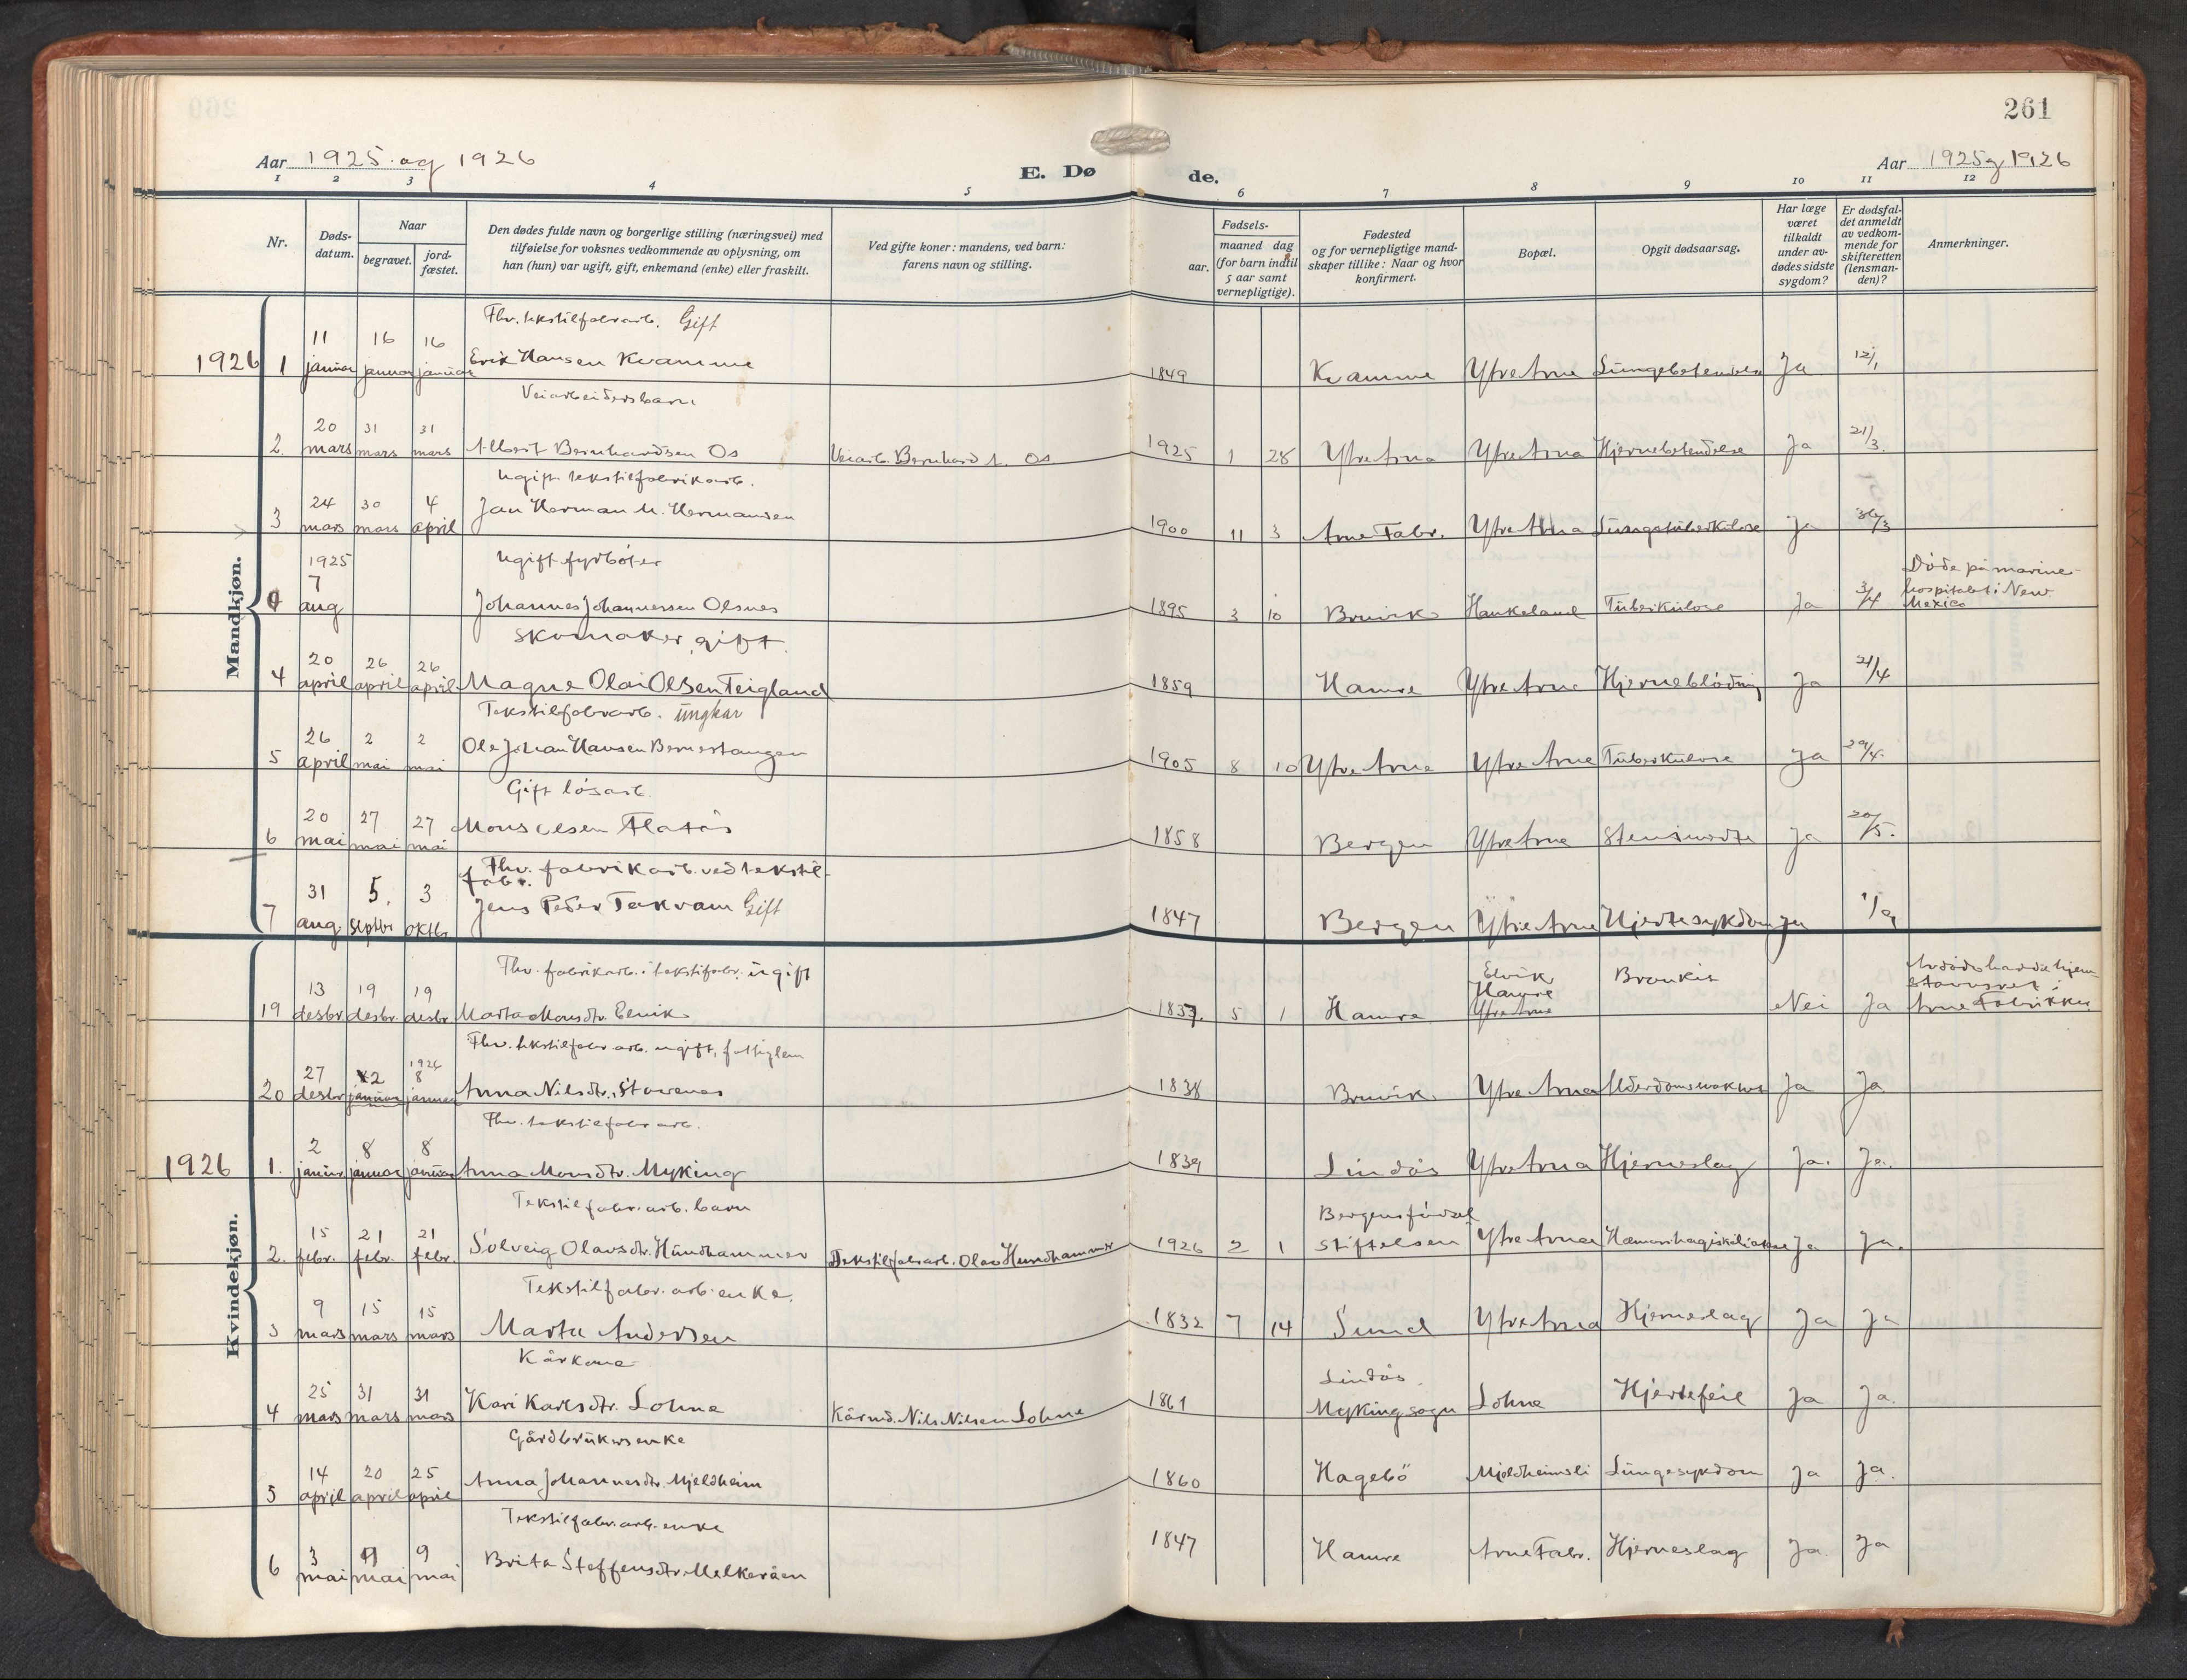 261
Aar 1925 og 1926
E. Døde.
Aar 1925 og 1926
1 2 3 4 5 6 7 8 9 10 11 12
Nr.
Døds-
datum.
Naar
begravet.
jord-
fæstet.
Den dødes fulde navn og borgerlige stilling (næringsvei) med
tilføielse for voksnes vedkommende av oplysning, om
han (hun) var ugift, gift, enkemand (enke) eller fraskilt.
Ved gifte koner: mandens, ved barn:
farens navn og stilling.
Fødsels-
aar.
maaned dag
(for barn indtil
5 aar samt
vernepligtige).
Fødested
og for vernepligtige mand-
skaper tillike: Naar og hvor
konfirmert.
Bopæl.
Opgit dødsaarsag.
Har læge
været
tilkaldt
under av-
dødes sidste
sygdom?
Er dødsfal-
det anmeldt
av vedkom-
mende for
skifteretten
(lensman-
den)?
Anmerkninger.
Mandkjøn.
Fhv. tekstilfabrarb. Gift
1926 1 11 januar 16 januar 16 januar Erik Hansen Kvamme 1849 Kvamme Ytre Arne Lungebetendelse Ja 12/1
Veiarbeidersbarn
2. 20 mars 31 mars 31 mars Albert Bernhardsen Os Veiarb. Bernhard A. Os 1925 1 28 Ytre Arna Ytre Arna Hjernebetendelse Ja 21/3.
Ugift tekstilfabrikarb.
3 24 mars 30 mars 4 april Jan Herman M. Hermansen 1900 11 3 Arne Fabr. Ytre Arna Lungetuberkulose Ja /3
1925 Ugift fyrbøter
7 aug Johannes Johannessen Olsnes 1895 3 10 Bruvik Haukeland Tuberkulose Ja 3/4 Døde på marine-
hospitalet i New
Mexico
Skomaker, gift.
4 20 april 26 april 26 april Magne Olai Olsen Teigland 1859 Hamre Ytre Arne Hjerneblødning Ja 21/4
Tekstilfabrarb. ungkar
5 26 april 2 mai 2 mai Ole Johan Hansen Bernestangen 1905 8 10 Ytre Arne Ytre Arne Tuberkulose Ja 29/4.
Gift løsarb.
6 20 mai 27 mai 27 mai Mons Olsen Flatås 1858 Bergen Ytre Arne Ja 20/5.
Fhv. fabrikarb. ved tekstil-
fabr.
7 31 aug 5. septbr 3 oktbr Jens Peder Takvam Gift 1847 Bergen Ytre Arne Hjertesykdom Ja 1/9
Kvindekjøn.
Fhv. fabrikarb. i tekstilfabr. ugift
19 13 desbr 19 desbr. 19 desbr Marta Monsdtr. Elvik 1837. 5 1 Hamre Elvik
Hamre
Ytre Arne Bronkit Nei Ja Avdøde hadde hjem-
stavnsret i
Arne Fabrikker.
Fhv. tekstilfabr arb. ugift, fattiglem
20 27 desbr 2 januar 1926 8 januar Anna Nilsdtr. Stavenes 1838 Bruvik. Ytre Arna Alderdomssvakhet Ja Ja
Fhv. tekstilfabr arb.
1926 1. 2 januar 8 januar 8 januar Anna Monsdtr. Myking 1839 Lindås Ytre Arna Hjerneslag Ja. Ja.
Tekstilfabr. arb. barn
2. 15 febr. 21 febr. 21 febr. Solveig Olavsdtr. Hundhammer Tekstilfabrarb. Olav Hundhammer 1926 2 1 Bergens fødsel
stiftelsen Ytre Arna Ja Ja.
Tekstilfabr. arb. enke.
3 9 mars 15 mars 15 mars Marta Andersen 1832 7 14 Sund Ytre Arna Hjerneslag Ja Ja
Kårkone
4 25 mars 31 mars 31 mars Kari Karlsdtr. Lohne Kårmd. Nils Nilsen Lohne 1861 Lindås.
Myking sogn Lohne Hjertefeil Ja Ja.
Gårdbrukersenke
5 14 april 20 april 25 april Anna Johannesdtr. Mjeldheim 1860 Hagebö Mjeldheimsli Lungesykdom Ja Ja.
Tekstilfabr. arb. enke
6 3 mai 9 mai 9 mai Brita Steffensdtr. Melkeråen 1847 Hamre Arne Fabr. Hjerneslag Ja. Ja